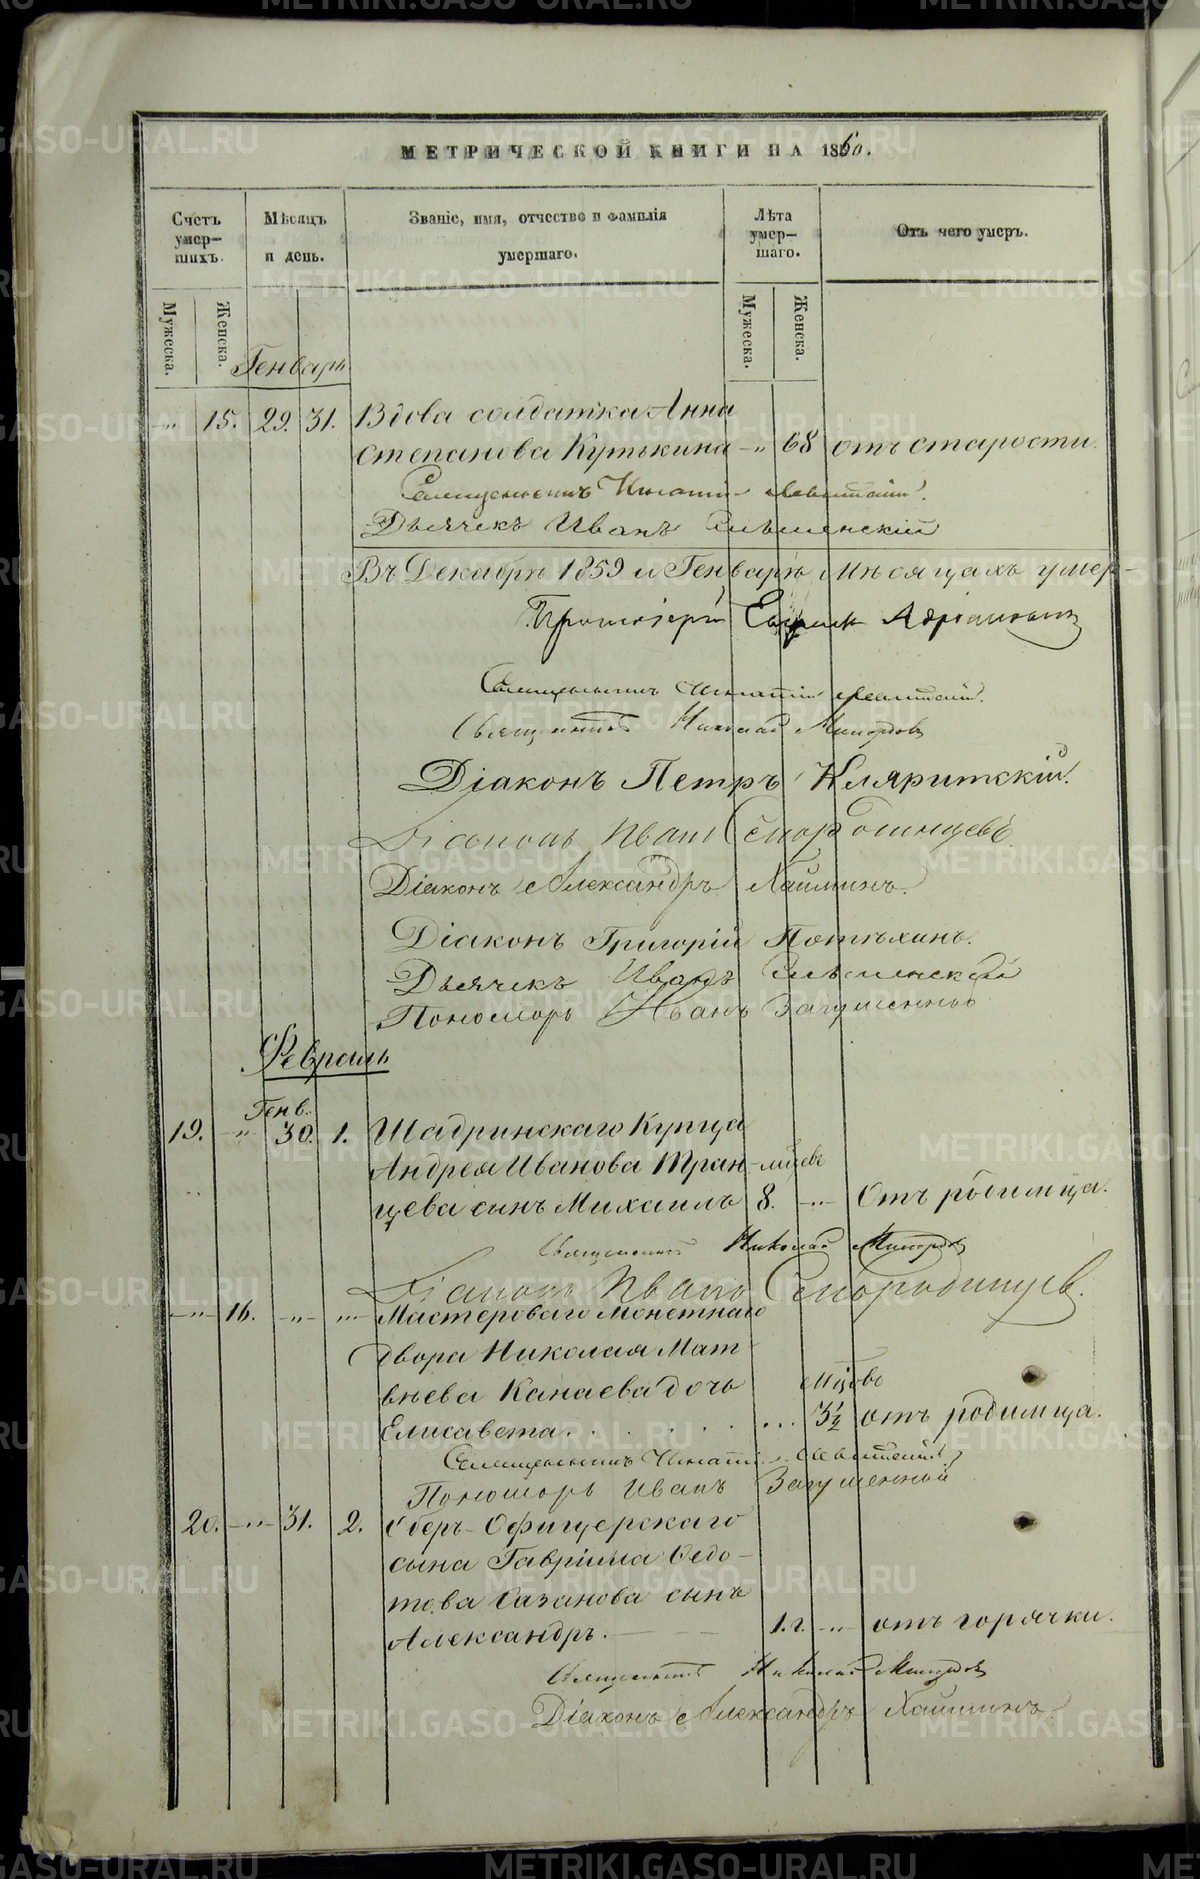 МЕТРИЧЕСКОЙ КНИГИ НА 1860.
Счетъ умер-шихъ.
Мѣсяцъ и день.
Званіе, имя, отчество и фамилія умершаго.
Лѣта умер-шаго.
Отъ чего умеръ.
Мужеска.
Женска.
Мужеска.
Женска.
Генварь
-"- 15. 29. 31. Вдова солдатка Анна
Степанова Кутькина -"- 68 отъ старости.
Священникъ Игнатій Левитскій.
Дьячекъ Иванъ
Въ Декабрѣ 1859 и Генварѣ мѣсяцахъ умер-
Протоіерей Адріановъ
Священникъ Игнатій Левитскій.
Священникъ Николай
Діаконъ Петръ Кляритскій.
Діаконъ Иванъ Смородинцевъ
Діаконъ Александръ Хайминъ.
Діаконъ Григорій Потѣхинъ.
Дьячекъ Иванъ
Пономарь Иванъ Загуменной
Февраль
Генв.
19. -"- 30. 1. Шадринскаго Купца
Андрея Иванова Тран- мцевъ
цева сынъ Михаилъ 8. -"- Отъ родимца.
Священникъ Николай
Діаконъ Иванъ Смородинцев.
-"- 16. -"- -"- Мастероваго монетнаго
двора Николая Мат-
вѣева Канаева дочь мцовъ
Елисавета. . . . . . . . 3½ отъ родимца.
Священникъ Игнатій Левитскій
Пономарь Иванъ Загуменной
20. -"- 31. 2. Оберъ-Офицерскаго
сына Гавріила Федо-
това Сазанова сынъ
Александръ. 1. г. -"- отъ горячки.
Священникъ Николай
Діаконъ Александръ Хайминъ.
METRIKI.GASO-URAL.RU